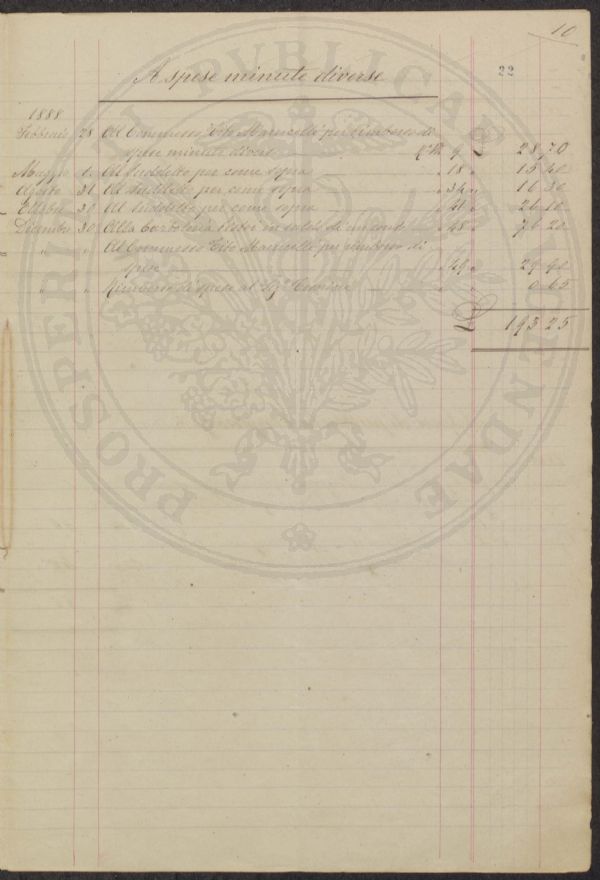 10
22
A spese minute diverse
1888
Febbraio 28 Al Commesso Tito per rimborso di
spese minute diverse Mto 9 L 28,70
Maggio Al Suddetto per come sopra " 18 " 15 40
Agosto 31 Al Suddetto per come sopra " 34 " 16 30
Ottobre 31 Al Suddetto per come sopra " 41 " 26 10
Dicembre 30 Alla Cartoleria in saldo di un conto " 48 " 76 20
" " Al Commesso Tito per rimborso di
spese " 49 " 29 90
" " Rimborso di spese al " " 0 65
L 193 25
PROSPERITATI PVBLICAE AVGENDAE